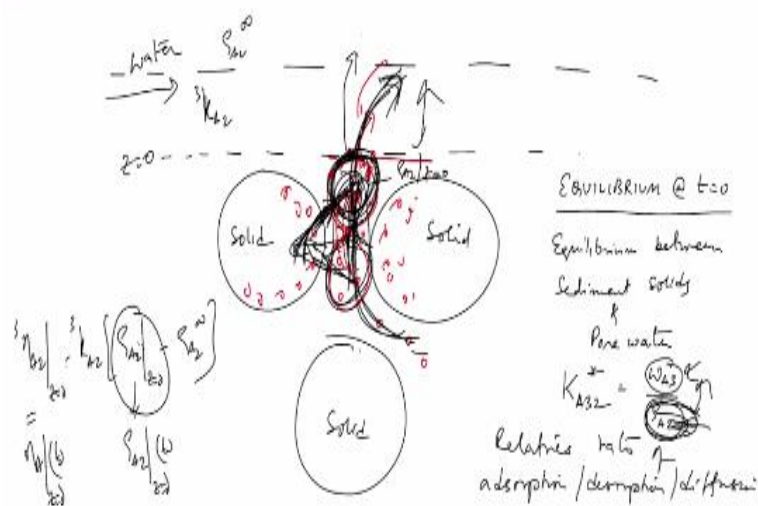 water ρ_A2^∞
³k_A2
z=0
ρ_A2|z=0
Solid
Solid
Solid
EQUILIBRIUM @ t=0
Equilibrium between
Sediment solids
&
Pore water
K_A32^* = W_A3
ρ_A2
Relative rate of
adsorption/desorption/diffusion
³n_A2|z=0 = ³k_A2 [ρ_A2|z=0 - ρ_A2^∞]
=
ρ_A2|(t)
z=0